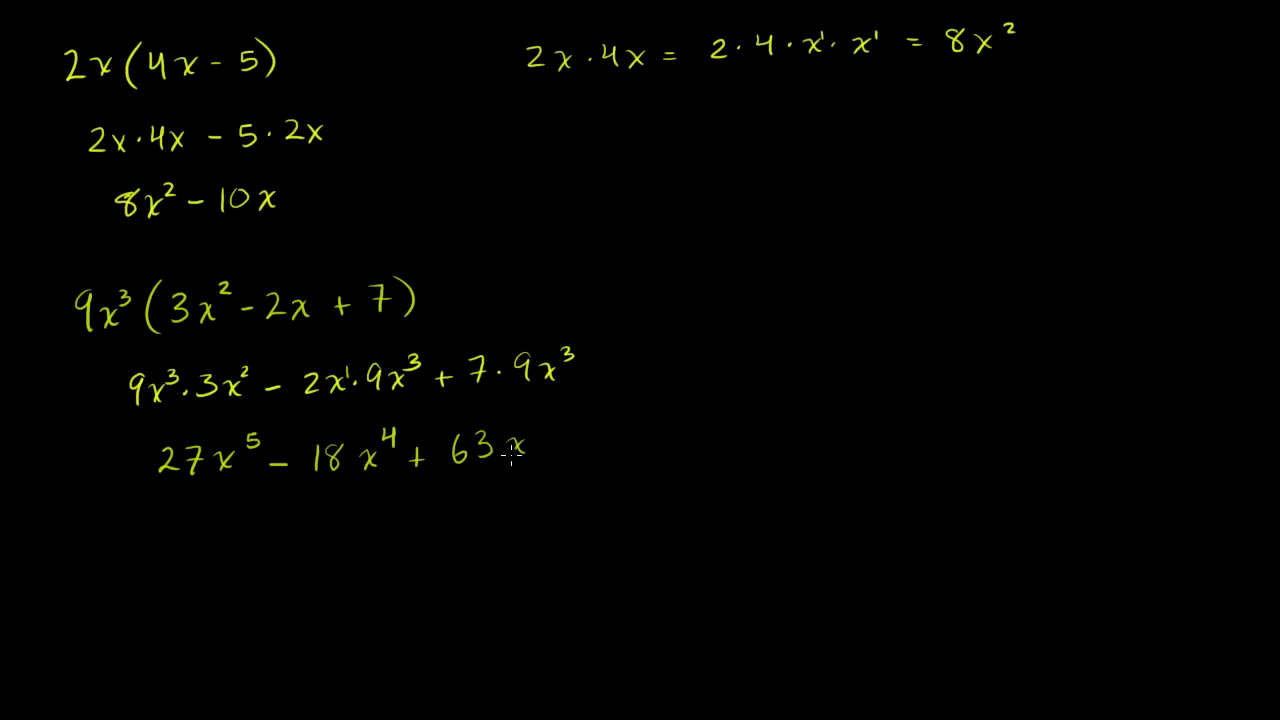 2x(4x - 5)
2x · 4x = 2 · 4 · x¹ · x¹ = 8x²
2x · 4x - 5 · 2x
8x² - 10x
9x³(3x² - 2x + 7)
9x³ · 3x² - 2x¹ · 9x³ + 7 · 9x³
27x⁵ - 18x⁴ + 63x